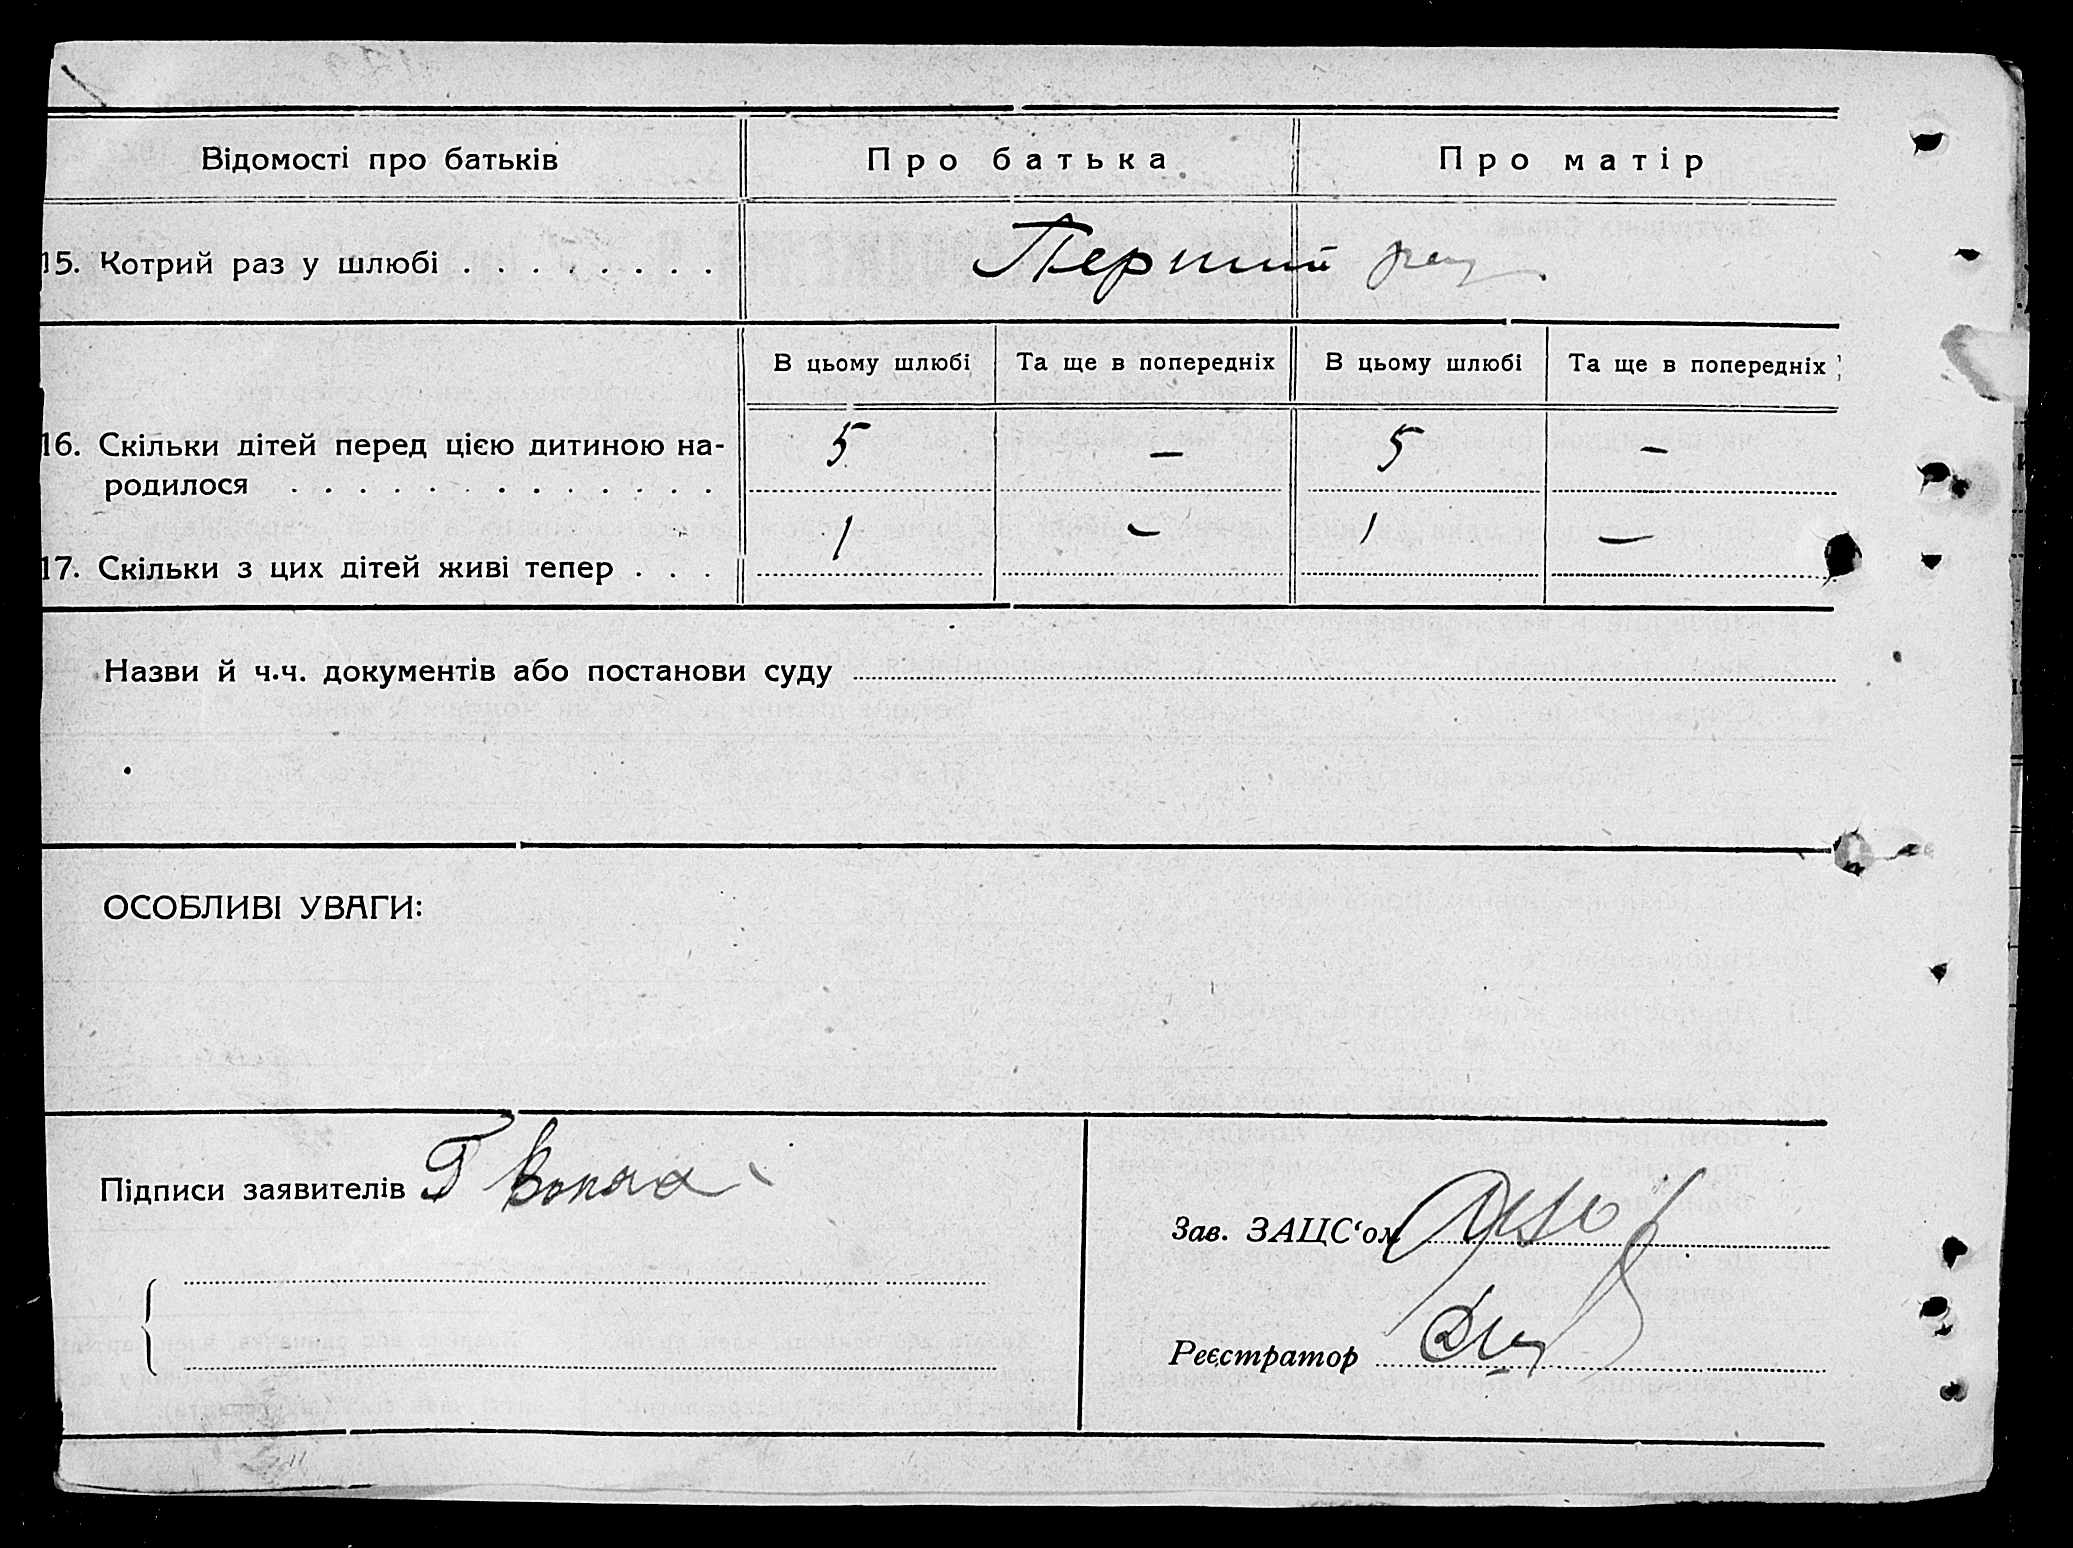 Відомості про батьків Про батька Про матір
15. Котрий раз у шлюбі . . . . . . . . Перший раз
В цьому шлюбі Та ще в попередніх В цьому шлюбі Та ще в попередніх
16. Скільки дітей перед цією дитиною на- 5 — 5 —
родилося . . . . . . . . . . . . .
17. Скільки з цих дітей живі тепер . . . 1 — 1 —
Назви й ч.ч. документів або постанови суду
ОСОБЛИВІ УВАГИ:
Підписи заявителів
Зав. ЗАЦС‘ом
Реєстратор